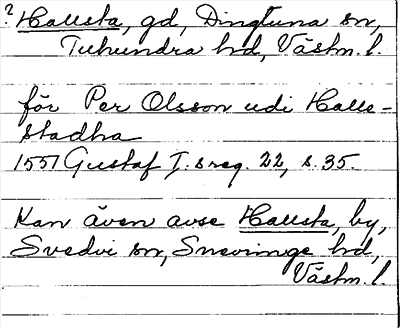 ? Hallsta, gd, Dingtuna sn,
Tuhundra hd, Västm. l.
för Per Olsson udi Halle-
stadha
1551 Gustaf I:s reg. 22, s. 35.
Kan även avse Hallsta, by,
Svedvi sn, Snevringe hd,
Västm. l.